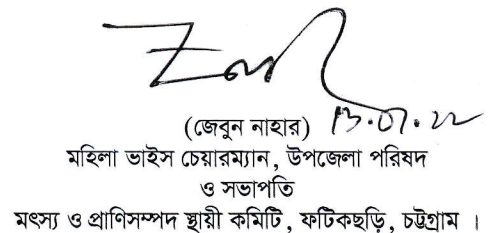 (জেবুন নাহার) 13.07.22
মহিলা ভাইস চেয়ারম্যান, উপজেলা পরিষদ
ও সভাপতি
মৎস্য ও প্রাণিসম্পদ স্থায়ী কমিটি, ফটিকছড়ি, চট্টগ্রাম ।